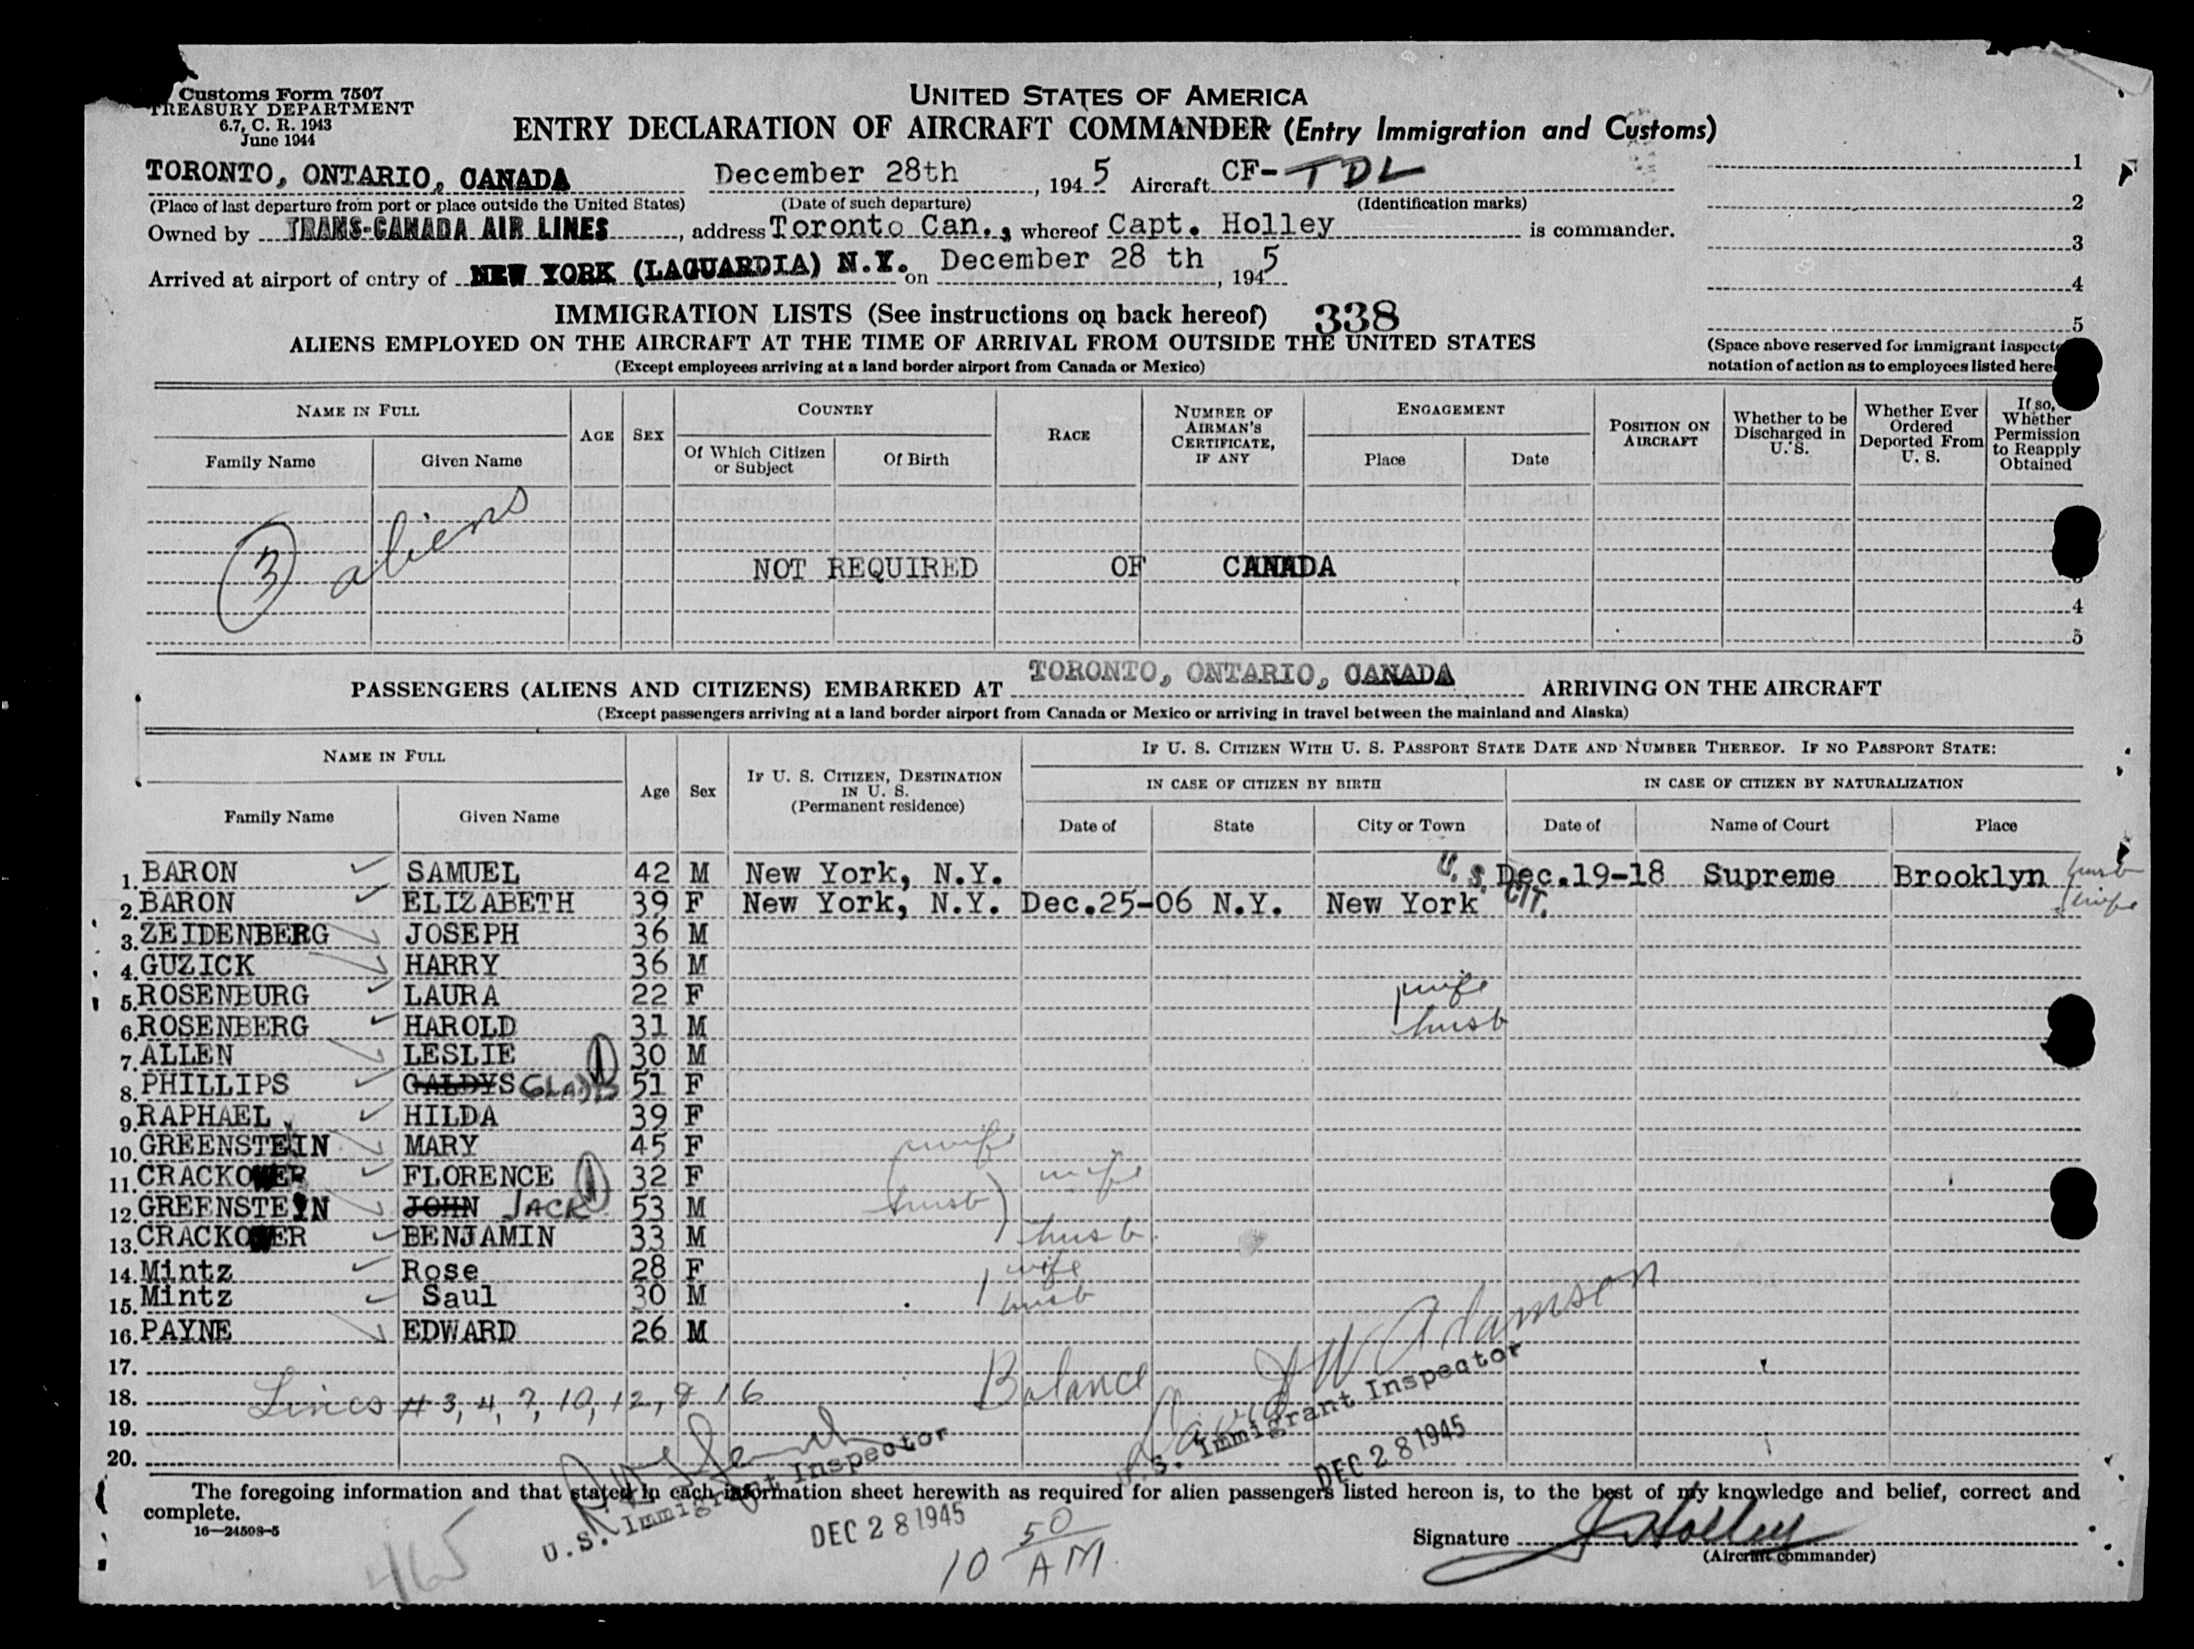 Customs Form 7507
TREASURY DEPARTMENT
6.7, C. R. 1943
June 1944
UNITED STATES OF AMERICA
ENTRY DECLARATION OF AIRCRAFT COMMANDER (Entry Immigration and Customs)
TORONTO, ONTARIO, CANADA December 28th, 1945 Aircraft CF-TDL
(Place of last departure from port or place outside the United States) (Date of such departure) (Identification marks)
Owned by TRANS-CANADA AIR LINES, address Toronto Can., whereof Capt. Holley is commander.
Arrived at airport of entry of NEW YORK (LAGUARDIA) N.Y. on December 28 th, 1945
1
2
3
4
5
(Space above reserved for immigrant inspecto
notation of action as to employees listed here
IMMIGRATION LISTS (See instructions on back hereof) 338
ALIENS EMPLOYED ON THE AIRCRAFT AT THE TIME OF ARRIVAL FROM OUTSIDE THE UNITED STATES
(Except employees arriving at a land border airport from Canada or Mexico)
NAME IN FULL
Family Name Given Name
AGE SEX
COUNTRY
Of Which Citizen or Subject Of Birth
RACE
NUMBER OF AIRMAN'S CERTIFICATE, IF ANY
ENGAGEMENT
Place Date
POSITION ON AIRCRAFT
Whether to be Discharged in U. S.
Whether Ever Ordered Deported From U. S.
If so, Whether Permission to Reapply Obtained
3 aliens
NOT REQUIRED OF CANADA
4
5
PASSENGERS (ALIENS AND CITIZENS) EMBARKED AT TORONTO, ONTARIO, CANADA ARRIVING ON THE AIRCRAFT
(Except passengers arriving at a land border airport from Canada or Mexico or arriving in travel between the mainland and Alaska)
NAME IN FULL
Family Name Given Name
Age Sex
IF U. S. CITIZEN, DESTINATION IN U. S.
(Permanent residence)
IF U. S. CITIZEN WITH U. S. PASSPORT STATE DATE AND NUMBER THEREOF. IF NO PASSPORT STATE:
IN CASE OF CITIZEN BY BIRTH IN CASE OF CITIZEN BY NATURALIZATION
Date of State City or Town Date of Name of Court Place
1. BARON SAMUEL 42 M New York, N.Y. U. S. CIT. Dec.19-18 Supreme Brooklyn husb
2. BARON ELIZABETH 39 F New York, N.Y. Dec.25-06 N.Y. New York wife
3. ZEIDENBERG JOSEPH 36 M
4. GUZICK HARRY 36 M
5. ROSENBURG LAURA 22 F wife
6. ROSENBERG HAROLD 31 M husb
7. ALLEN LESLIE 30 M
8. PHILLIPS GALDYS GLADYS 51 F
9. RAPHAEL HILDA 39 F
10. GREENSTEIN MARY 45 F wife
11. CRACKOWER FLORENCE 32 F wife
12. GREENSTEIN JOHN JACK 53 M husb
13. CRACKOWER BENJAMIN 33 M husb.
14. Mintz Rose 28 F wife
15. Mintz Saul 30 M husb
16. PAYNE EDWARD 26 M
17.
18. Lines # 3, 4, 7, 10, 12, & 16 Balance
19.
20.
U.S. Immigrant Inspector
DEC 28 1945
J W Adamson
U.S. Immigrant Inspector
DEC 28 1945
The foregoing information and that stated in each information sheet herewith as required for alien passengers listed hereon is, to the best of my knowledge and belief, correct and
complete.
16—24508-5
465
10 50 AM
Signature J Holley
(Aircraft commander)